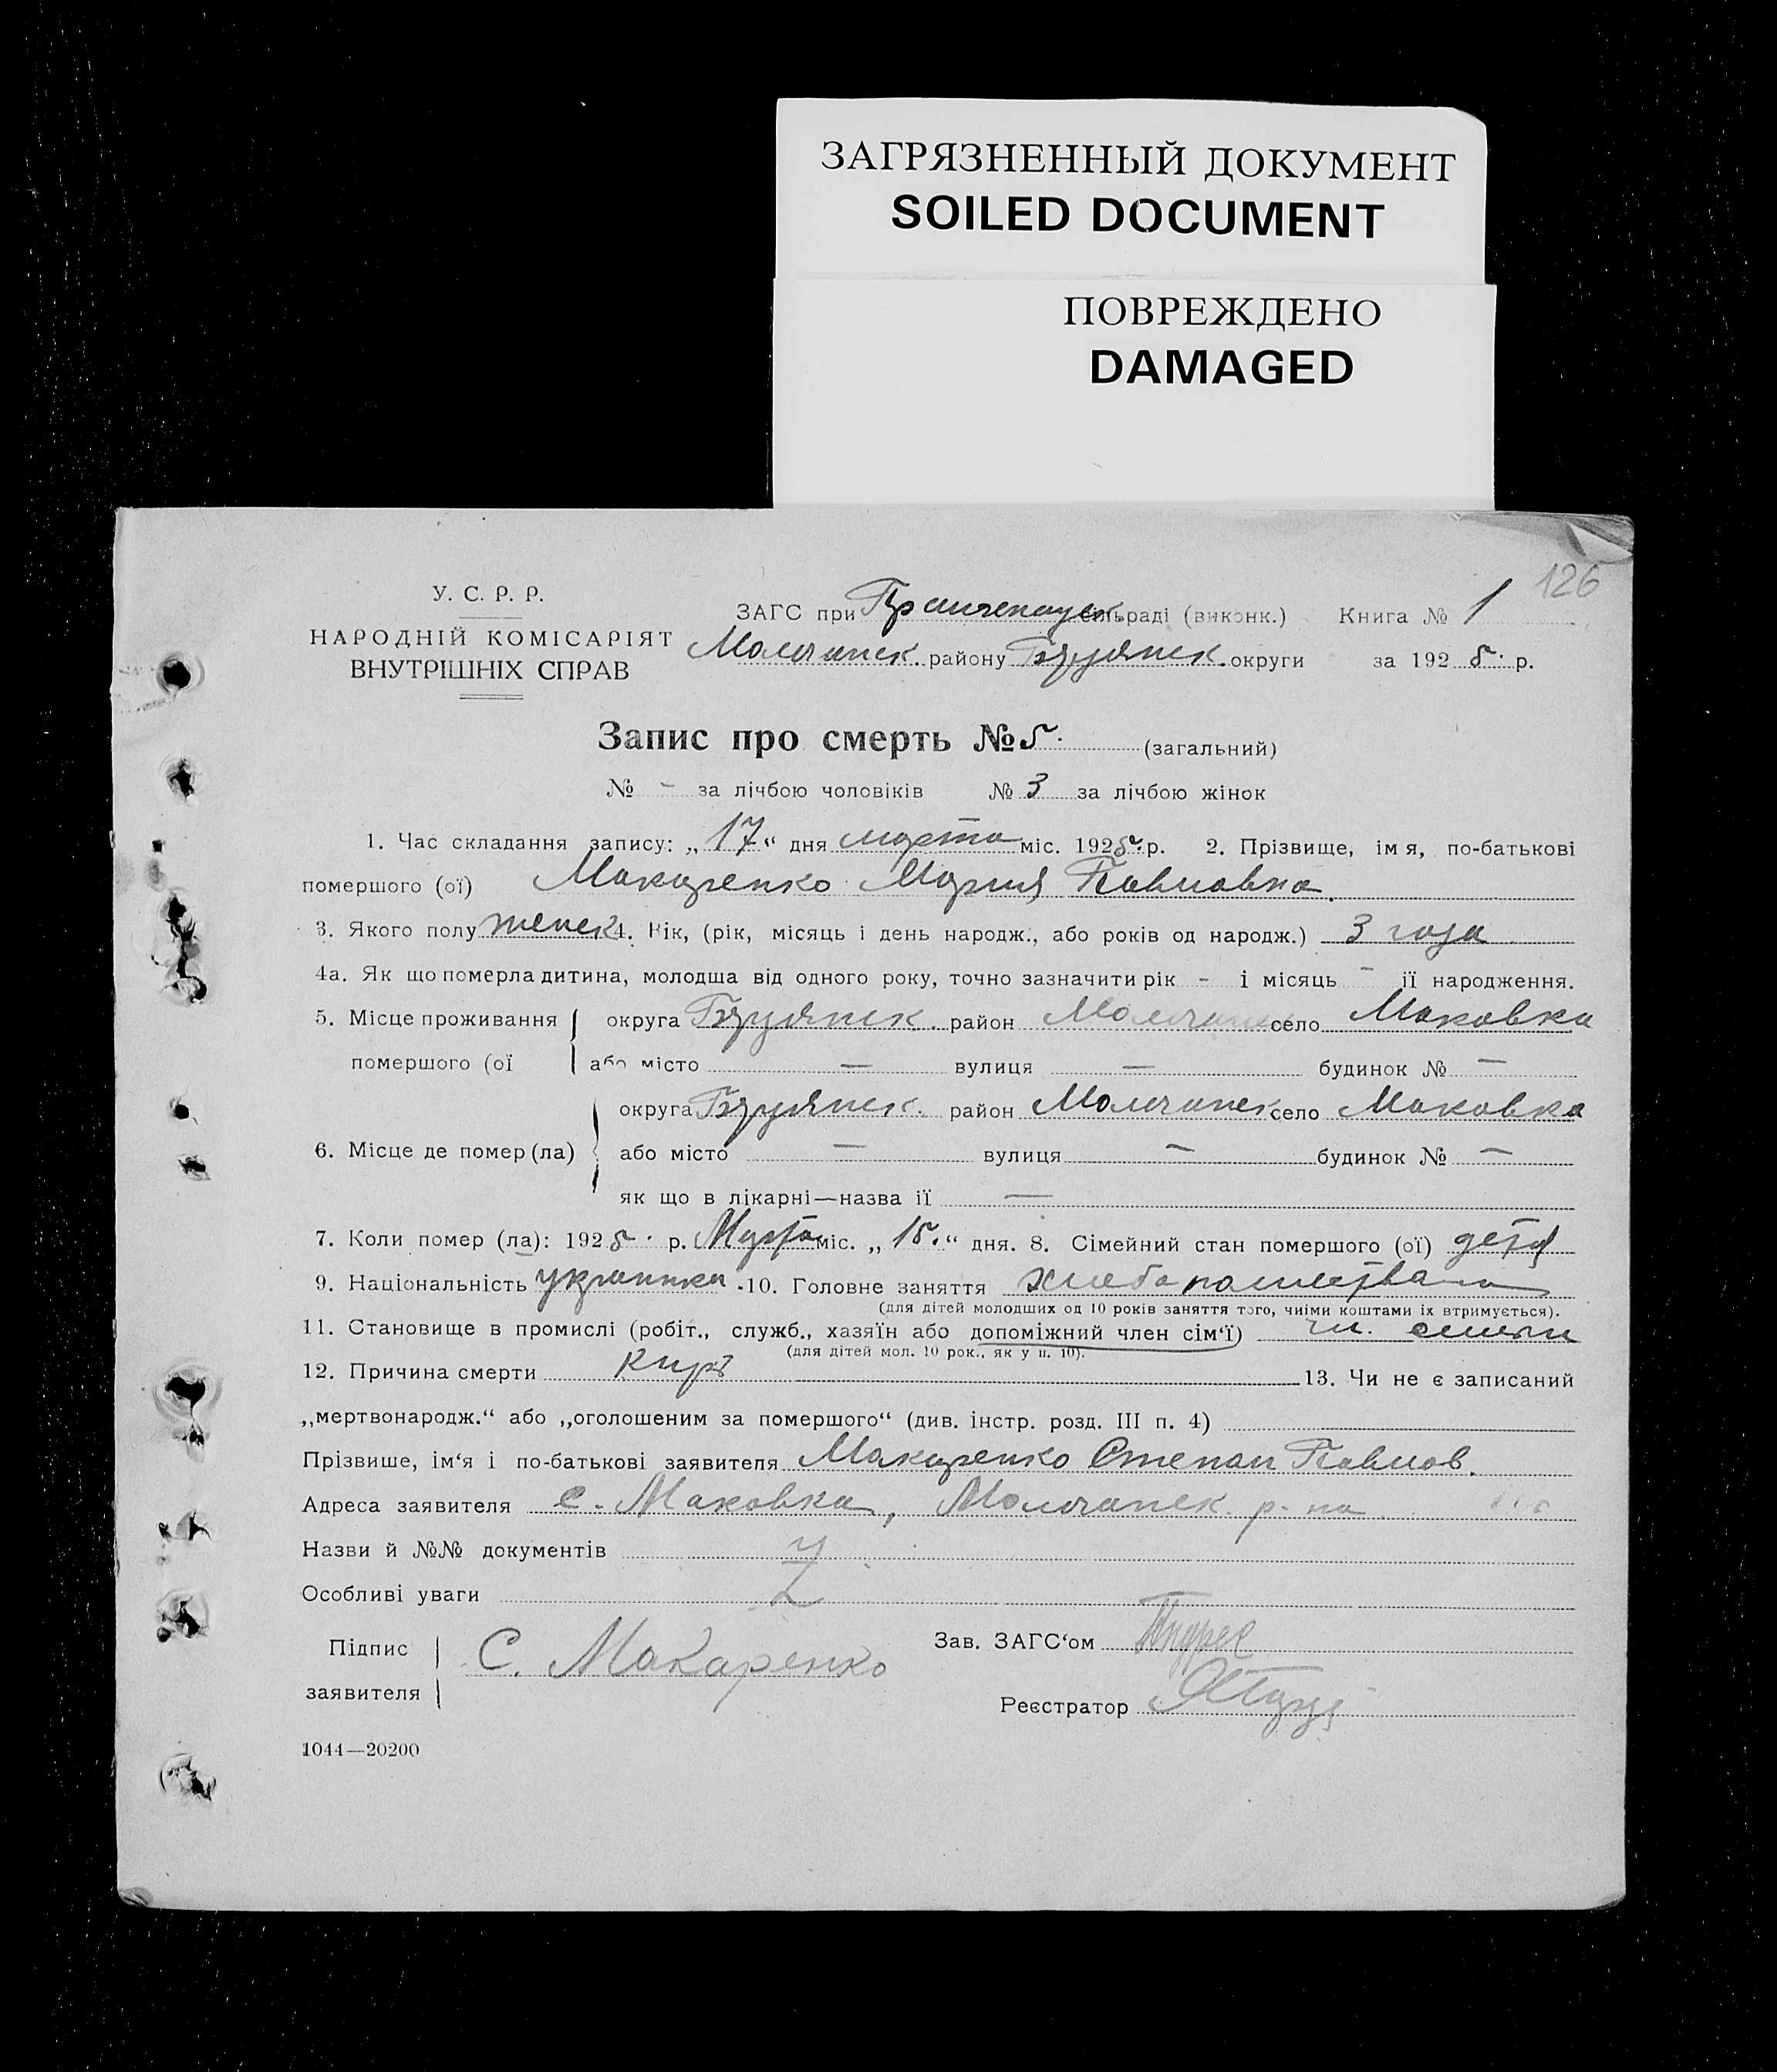 ЗАГРЯЗНЕННЫЙ ДОКУМЕНТ
SOILED DOCUMENT
ПОВРЕЖДЕНО
DAMAGED
126
У. С. Р. Р.
НАРОДНІЙ КОМІСАРІЯТ
ВНУТРІШНІХ СПРАВ
ЗАГС при сільраді (виконк.) Книга № 1
Молочанск. району Бердянск. округи за 1925. р.
Запис про смерть № 5. (загальний)
№ - за лічбою чоловіків № 3 за лічбою жінок
1. Час складання запису: „17“ дня марта міс. 1925. р. 2. Прізвище, ім я, по-батькові
помершого (ої) Макаренко Мария Павловна.
3. Якого полу женск 4. Вік, (рік, місяць і день народж., або років од народж.) 3 года
4а. Як що померла дитина, молодша від одного року, точно зазначити рік - і місяць - ії народження.
5. Місце проживання помершого (ої округа Бердянск. район Молочанск село Маковка
або місто — вулиця — будинок № —
6. Місце де помер (ла) округа Бердянск. район Молочанск село Маковка
або місто — вулиця — будинок № —
як що в лікарні—назва ії —
7. Коли помер (ла): 1925. р. Марта міс. „15.“ дня. 8. Сімейний стан помершого (ої) детя
9. Національність украинка 10. Головне заняття хлебопашества
(для дітей молодших од 10 років заняття того, чиїми коштами їх втримується).
11. Становище в промислі (робіт., служб., хазяїн або допоміжний член сім'ї) чл. семьи
(для дітей мол. 10 рок., як у п. 10).
12. Причина смерти 13. Чи не є записаний
„мертвонародж.“ або „оголошеним за помершого“ (див. інстр. розд. III п. 4)
Прізвише, ім'я і по-батькові заявителя Макаренко Степан Павлов.
Адреса заявителя с. Маковка, Молочанск. р-на
Назви й №№ документів
Особливі уваги
Підпис заявителя С. Макаренко
Зав. ЗАГС'ом
Реєстратор
1044—20200